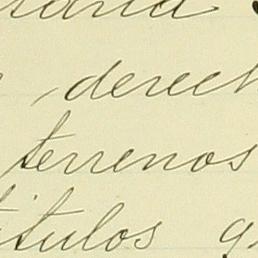 derech
terrenos
titulos